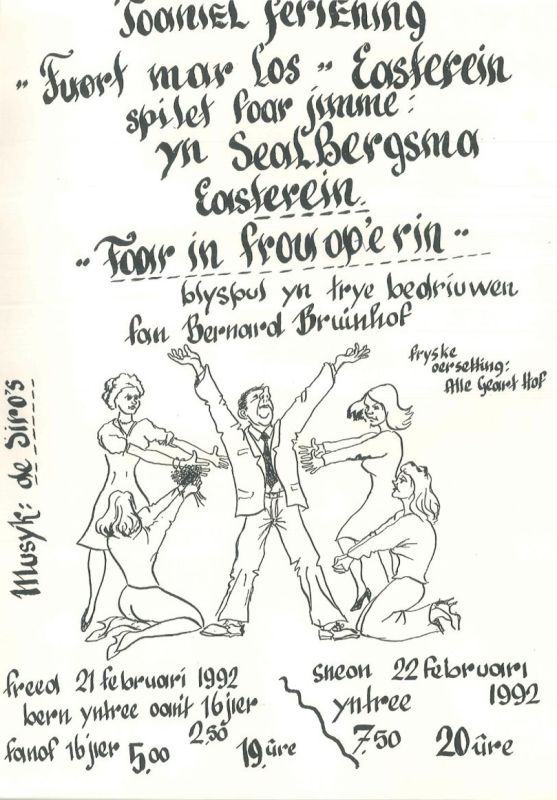 Toaniel feriening
„ Fuort mar los „ Easterein
spilet foar jimme:
yn Seal Bergsma
Easterein.
„ Foar in frou op'e rin „
blyspul yn trye bedriuwen
fan Bernard Bruinhof
fryske
oersetting:
Atle Geart Hof
Musyk: de Siro's
freed 21 februari 1992
bern yntree oant 16 jier
2.50
fanof 16 jier 5,00 19. ûre
sneon 22 februari
1992
yntree
7.50 20 ûre